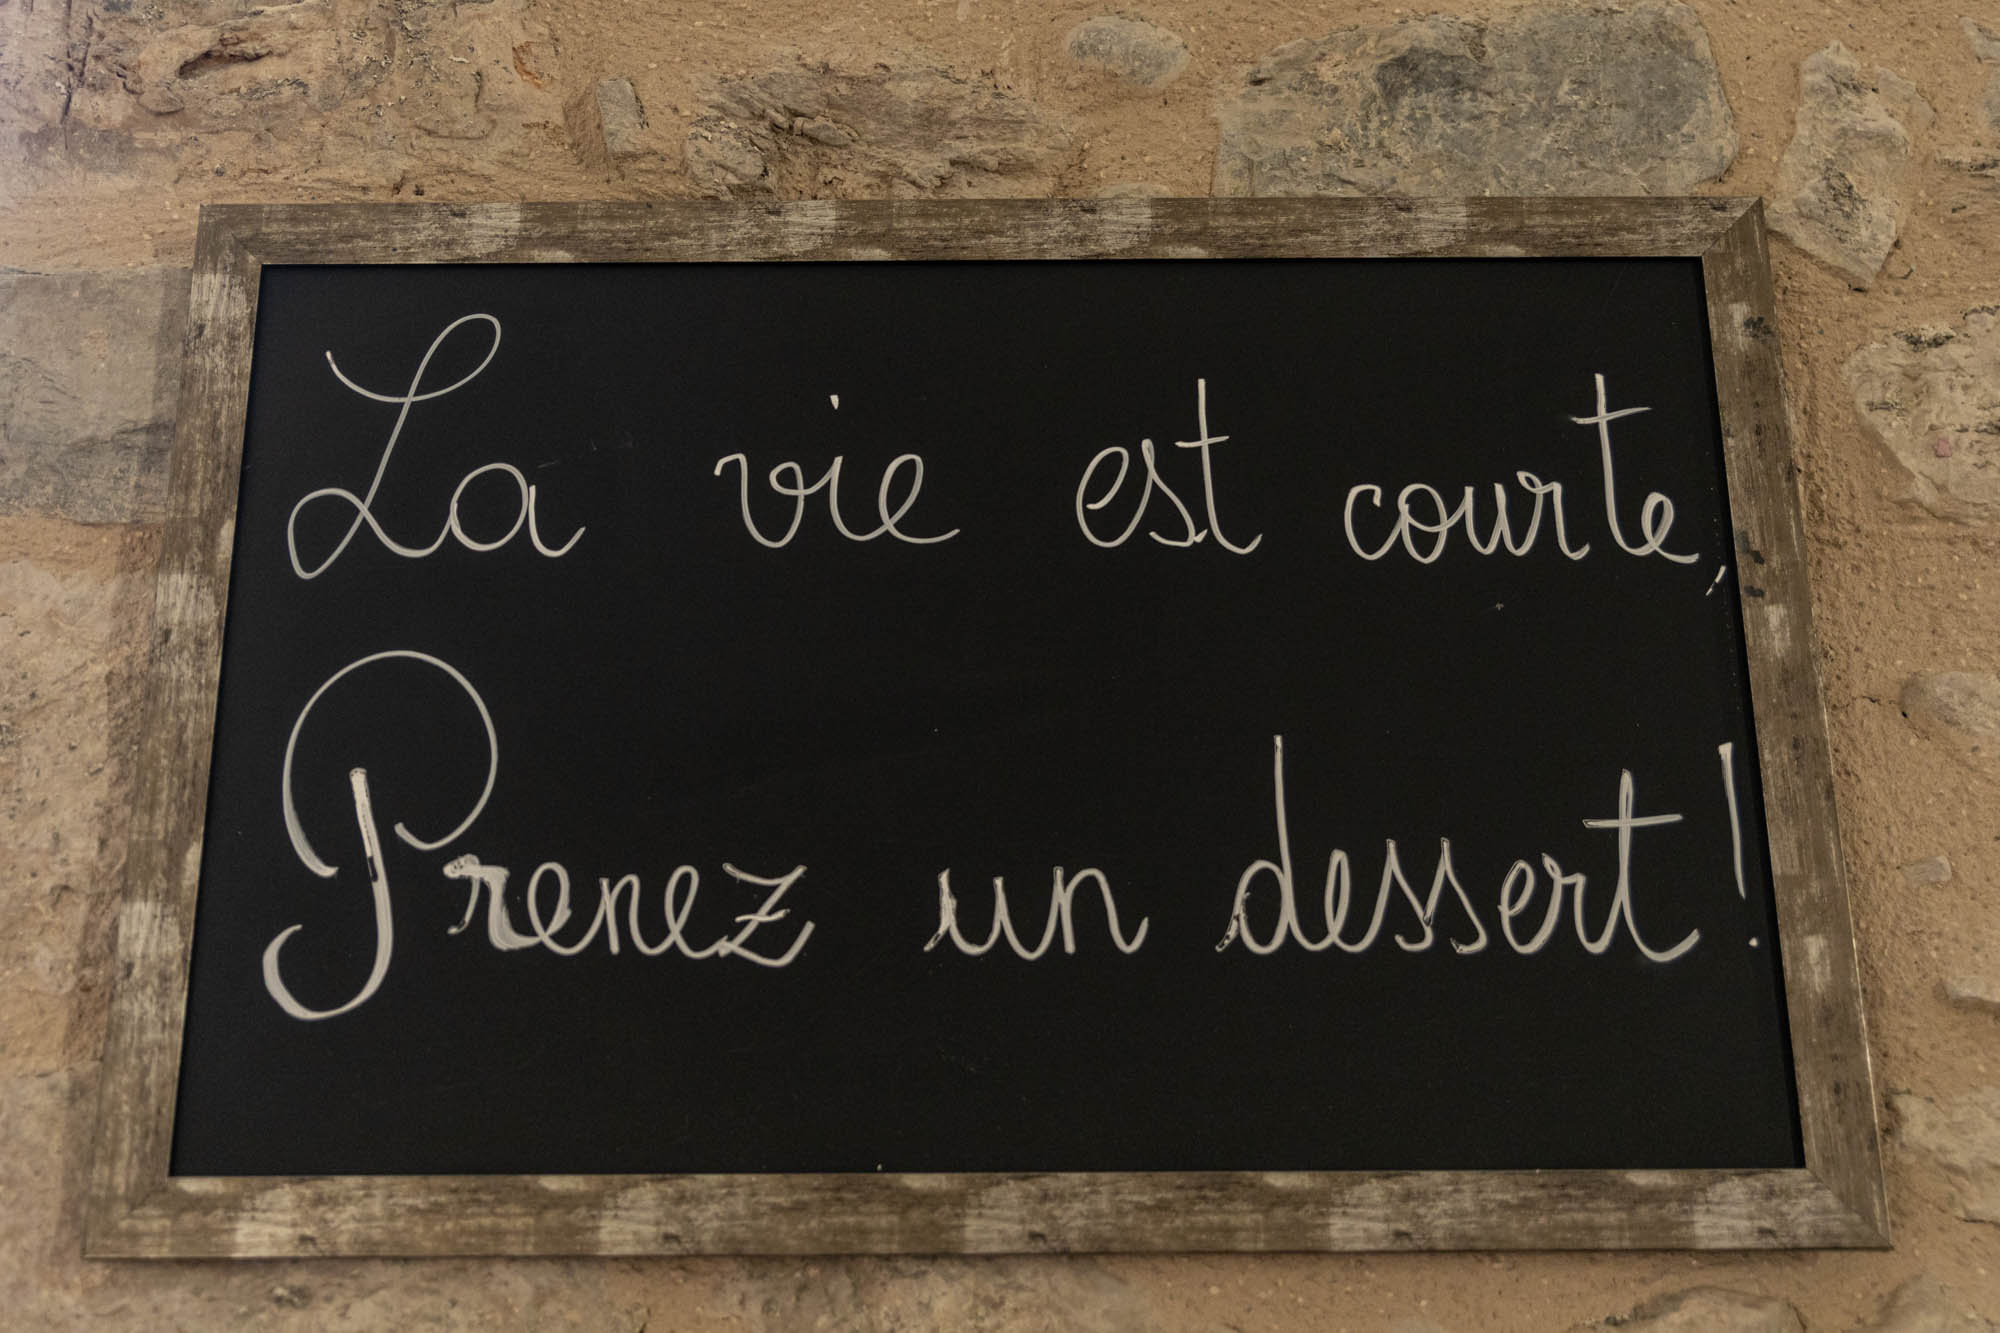 La vie est courte,
Prenez un dessert !